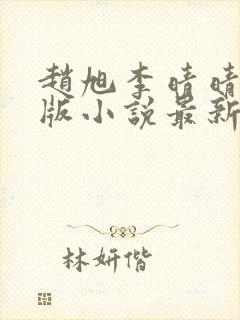 趙旭李晴晴
版小說最新
林妍偕